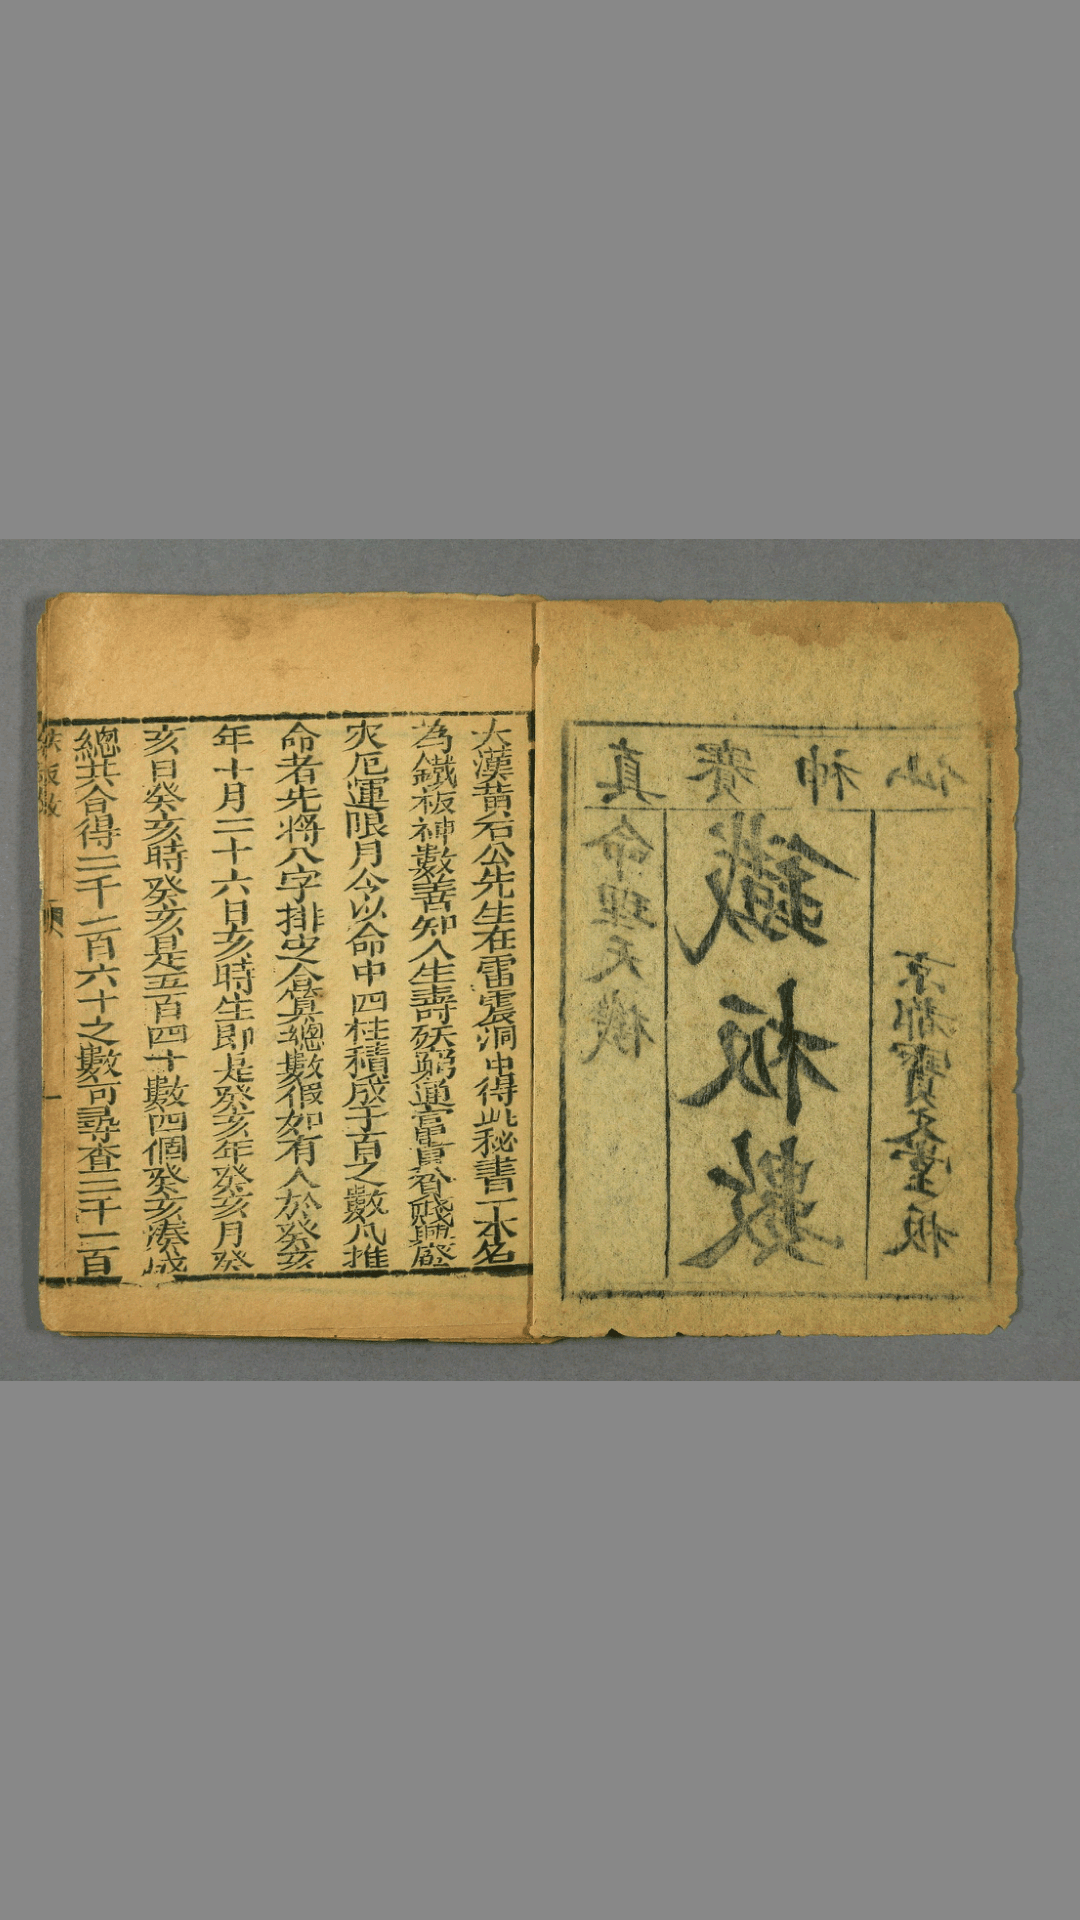 真賽神仙
命理天機
鐵板數
京都寶文堂板
大漢黃石公先生在雷震洞中得此秘書一本名
為鐵板神數善知人生壽殀窮通富貴貧賤興廢
灾厄運限月令以命中四柱積成于百之數凡推
命者先將八字排定合算總數假如有人於癸亥
年十月二十六日亥時生即是癸亥年癸亥月癸
亥日癸亥時癸亥是五百四十數四個癸亥湊成
總共合得二千一百六十之數可尋查二千一百